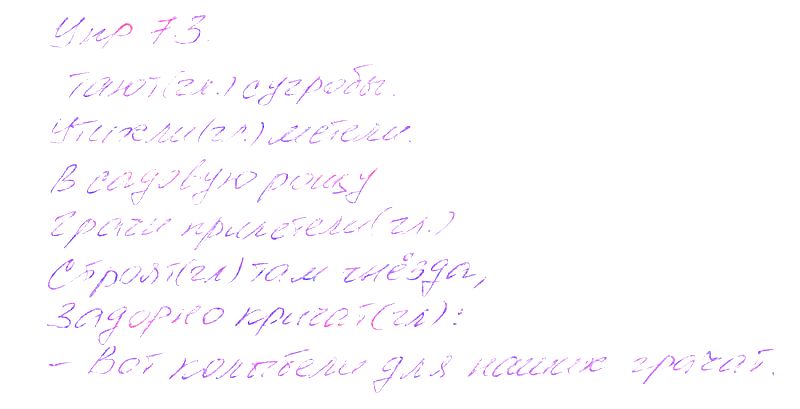 Упр 73.
Тают(гл.) сугробы.
Утихли(гл.) метели.
В садовую рощу
Грачи прилетели(гл.)
Строят(гл) там гнёзда,
Задорно кричат(гл):
- Вот колыбели для наших грачат.